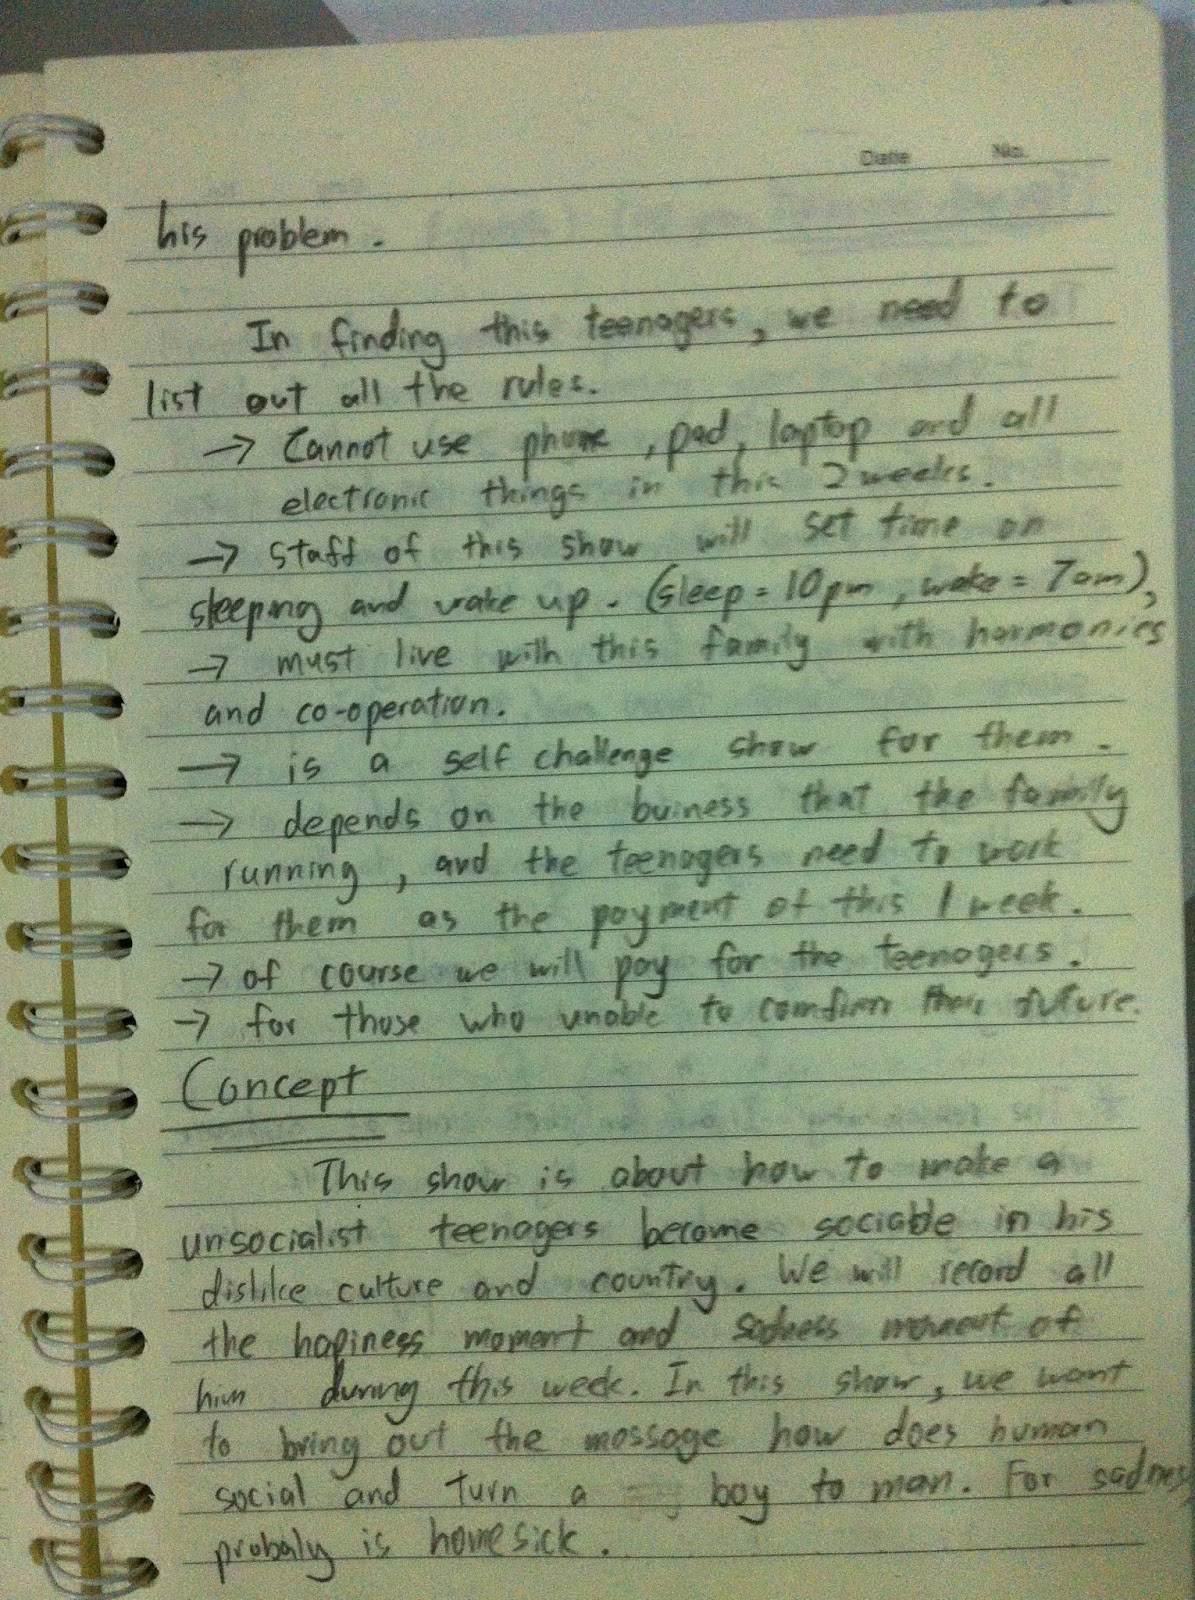 Date No.
his problem.
In finding this teenagers, we need to
list out all the rules.
→ Cannot use phone, pad, laptop and all
electronic things in this 2 weeks.
→ staff of this show will set time on
sleeping and wake up. (sleep = 10pm, wake = 7am),
→ must live with this family with harmonies
and co-operation.
→ is a self challenge show for them.
→ depends on the buiness that the family
running, and the teenagers need to work
for them as the payment of this 1 week.
→ of course we will pay for the teenagers.
→ for those who unable to comfirm their future.
Concept
This show is about how to make a
unsocialist teenagers become sociable in his
dislike culture and country. We will record all
the hapiness moment and sadness moment of
him during this week. In this show, we want
to bring out the massage how does human
social and turn a boy to man. For sadness,
probaly is homesick.